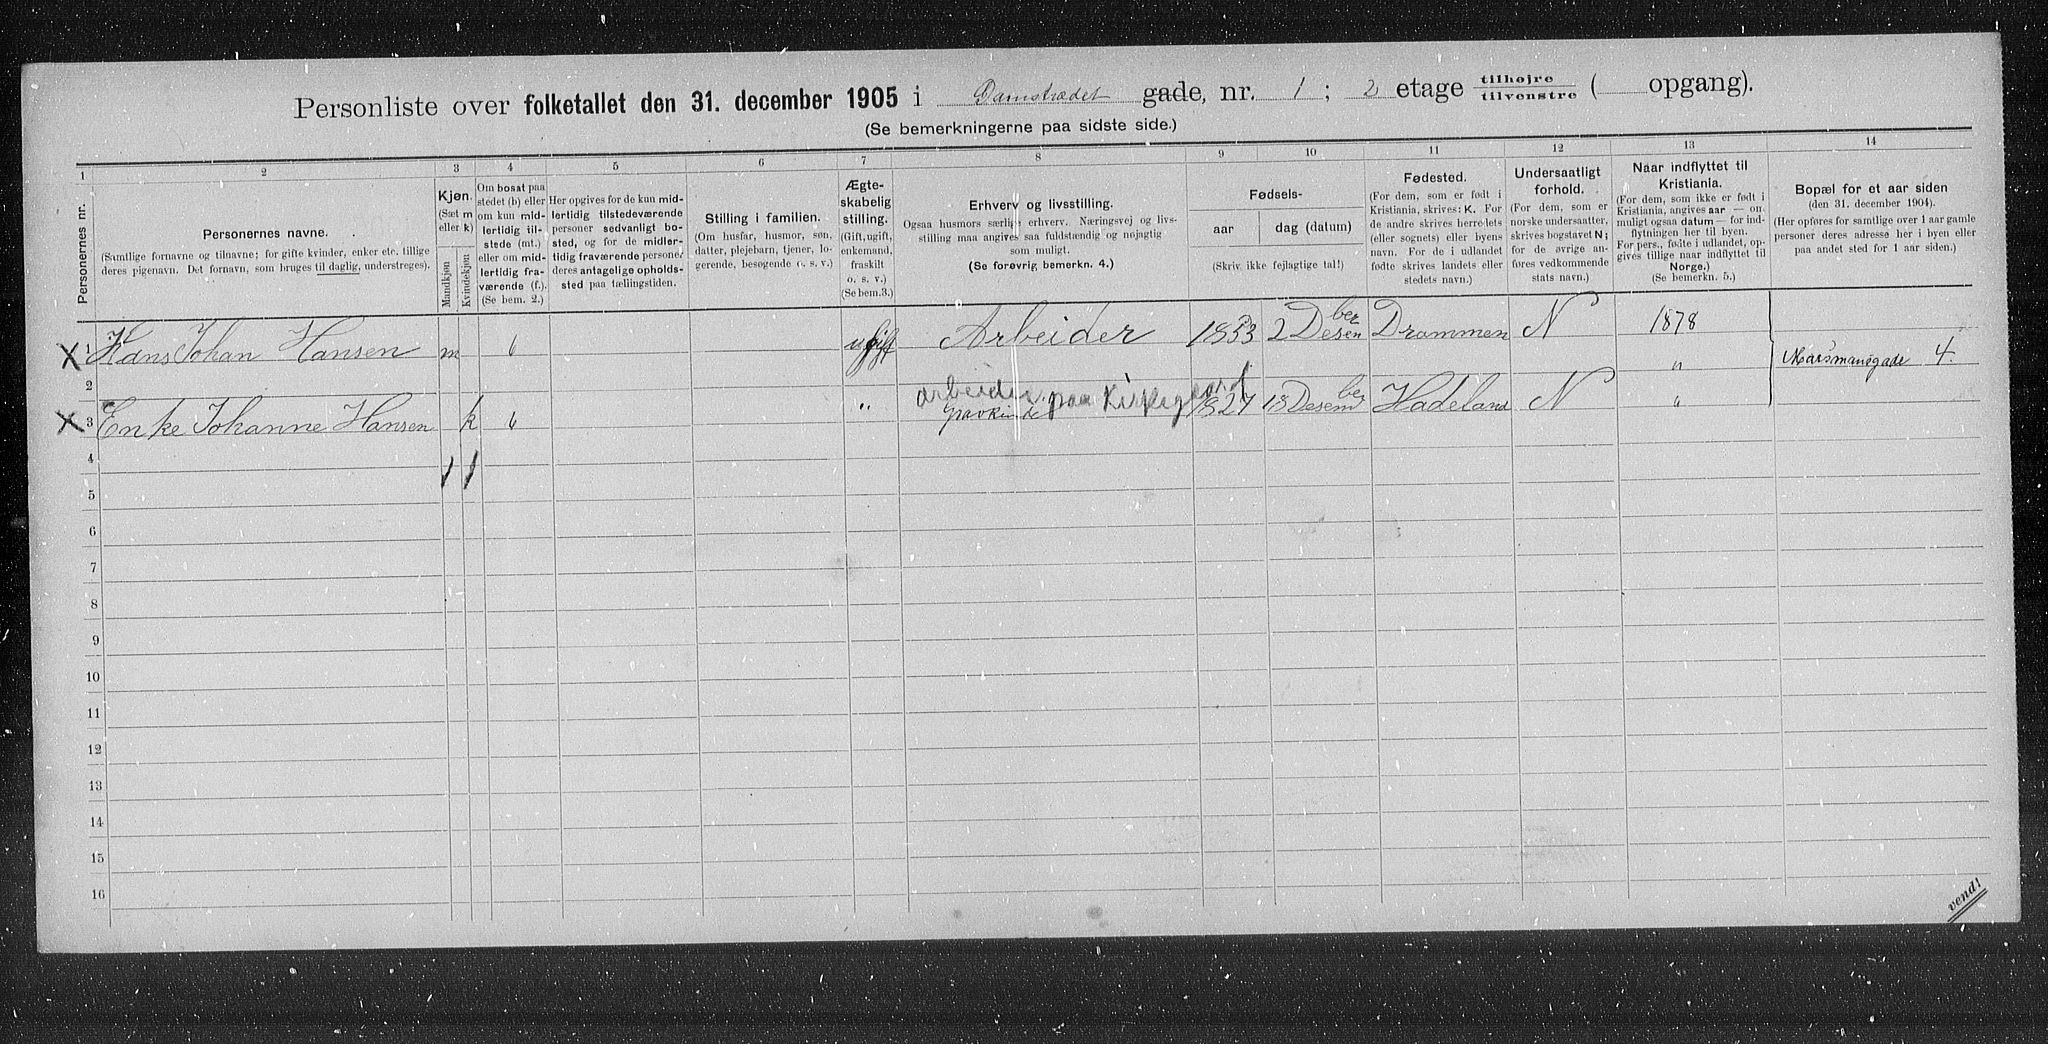 Personliste over folketallet den 31. december 1905 i Damstrædet gade, nr. 1 ; 2 etage tilhøjre tilvenstre ( opgang).
(Se bemerkningerne paa sidste side.)
1 2 3 4 5 6 7 8 9 10 11 12 13 14
Personernes nr.
Personernes navne.
(Samtlige fornavne og tilnavne; for gifte kvinder, enker etc. tillige
deres pigenavn. Det fornavn, som bruges til daglig, understreges).
Kjøn.
(Sæt m
eller k)
Mandkjøn
Kvindekjøn
Om bosat paa
stedet (b) eller
om kun mid-
lertidig til-
stede (mt.)
eller om mid-
lertidig fra-
værende (f.).
(Se bem. 2.)
Her opgives for de kun mid-
lertidig tilstedeværende
personer sedvanligt bo-
sted, og for de midler-
tidig fraværende personer
deres antagelige opholds-
sted paa tællingstiden.
Stilling i familien.
(Om husfar, husmor, søn,
datter, plejebarn, tjener, lo-
gerende, besøgende o. s. v.)
Ægte-
skabelig
stilling.
(Gift, ugift,
enkemand,
fraskilt
o. s. v.)
(Se bem. 3.)
Erhverv og livsstilling.
Ogsaa husmors særlige erhverv. Næringsvej og livs-
stilling maa angives saa fuldstændig og nøjagtig
som muligt.
(Se forøvrig bemerkn. 4.)
Fødsels-
aar
dag (datum)
(Skriv ikke fejlagtige tal!)
Fødested.
(For dem, som er født i
Kristiania, skrives: K. For
de andre skrives herredets
(eller sognets) eller byens
navn. For de i udlandet
fødte skrives landets eller
stedets navn.)
Undersaatligt
forhold.
(For dem, som er
norske undersaatter,
skrives bogstavet N;
for de øvrige an-
føres vedkommende
stats navn.)
Naar indflyttet til
Kristiania.
(For dem, som ikke er født i
Kristiania, angives aar — om
muligt ogsaa datum — for ind-
flytningen her til byen.
For pers., fødte i udlandet, op-
gives tillige naar indflyttet til
Norge.)
(Se bemerkn. 5.)
Bopæl for et aar siden
(den 31. december 1904).
(Her opføres for samtlige over 1 aar gamle
personer deres adresse her i byen eller
paa andet sted for 1 aar siden.)
X 1 Hans Johan Hansen m b ugift Arbeider 1853 2 Desenber Drammen N 1878
" Marsmansgade 4.
2 arbeider paa Kirkegaard
X 3 Enke Johanne Hansen k b " 1827 18 Desember Hadeland N "
4
5
6
7
8
9
10
11
12
13
14
15
16
vend!